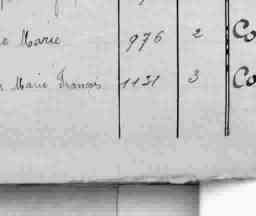 Marie 976 2 Co
Marie Francois 1121 3 Co